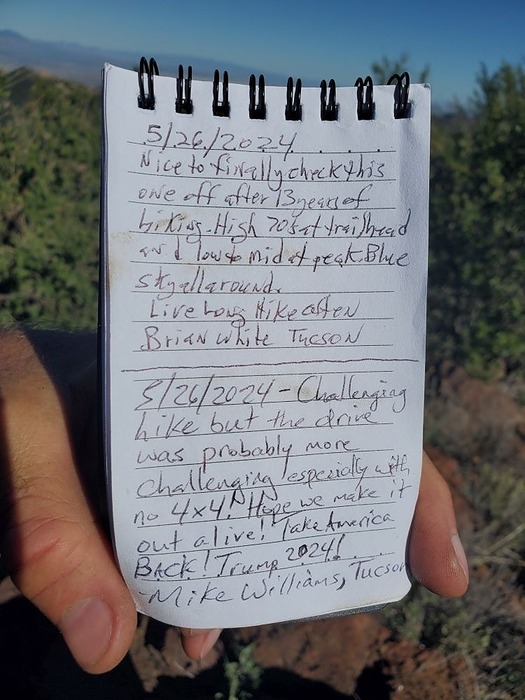 5/26/2024
Nice to finally check this
one off after 13 years of
hiking. High 70s at trailhead
and low to mid at peak. Blue
sky all around.
Live Long Hike often
Brian White Tucson
5/26/2024 - Challenging
hike but the drive
was probably more
challenging especially with
no 4x4! Hope we make it
out alive! Take America
BACK! Trump 2024!
- Mike Williams, Tucson